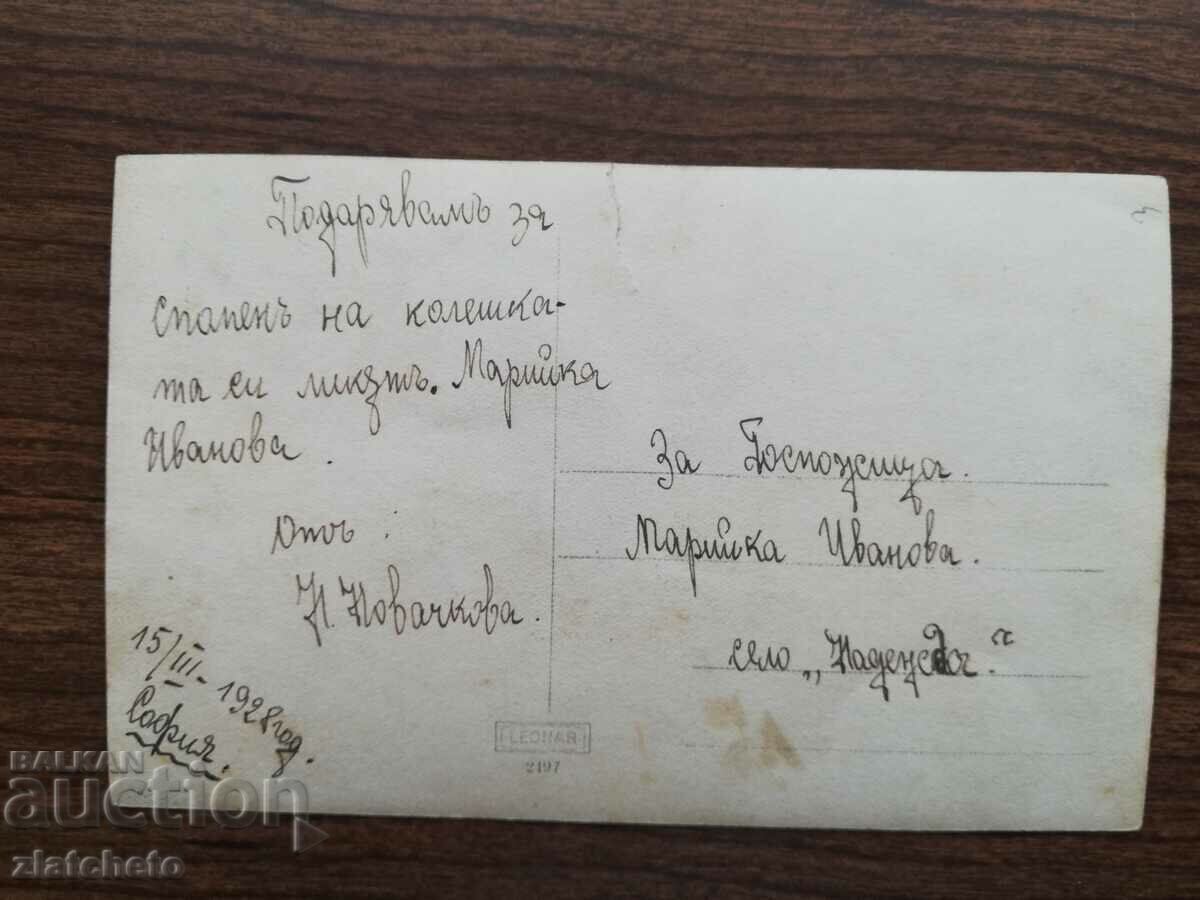 Подарявамъ за
Спапенъ на колешка-
та си Марийка
Иванова.
Отъ:
Н. Новачкова.
15/III-1928 год.
София.
За Госпожица.
Марийка Иванова.
село „Надежда."
LEONAR
2197
15
3
BALKAN
auction
zlatcheto